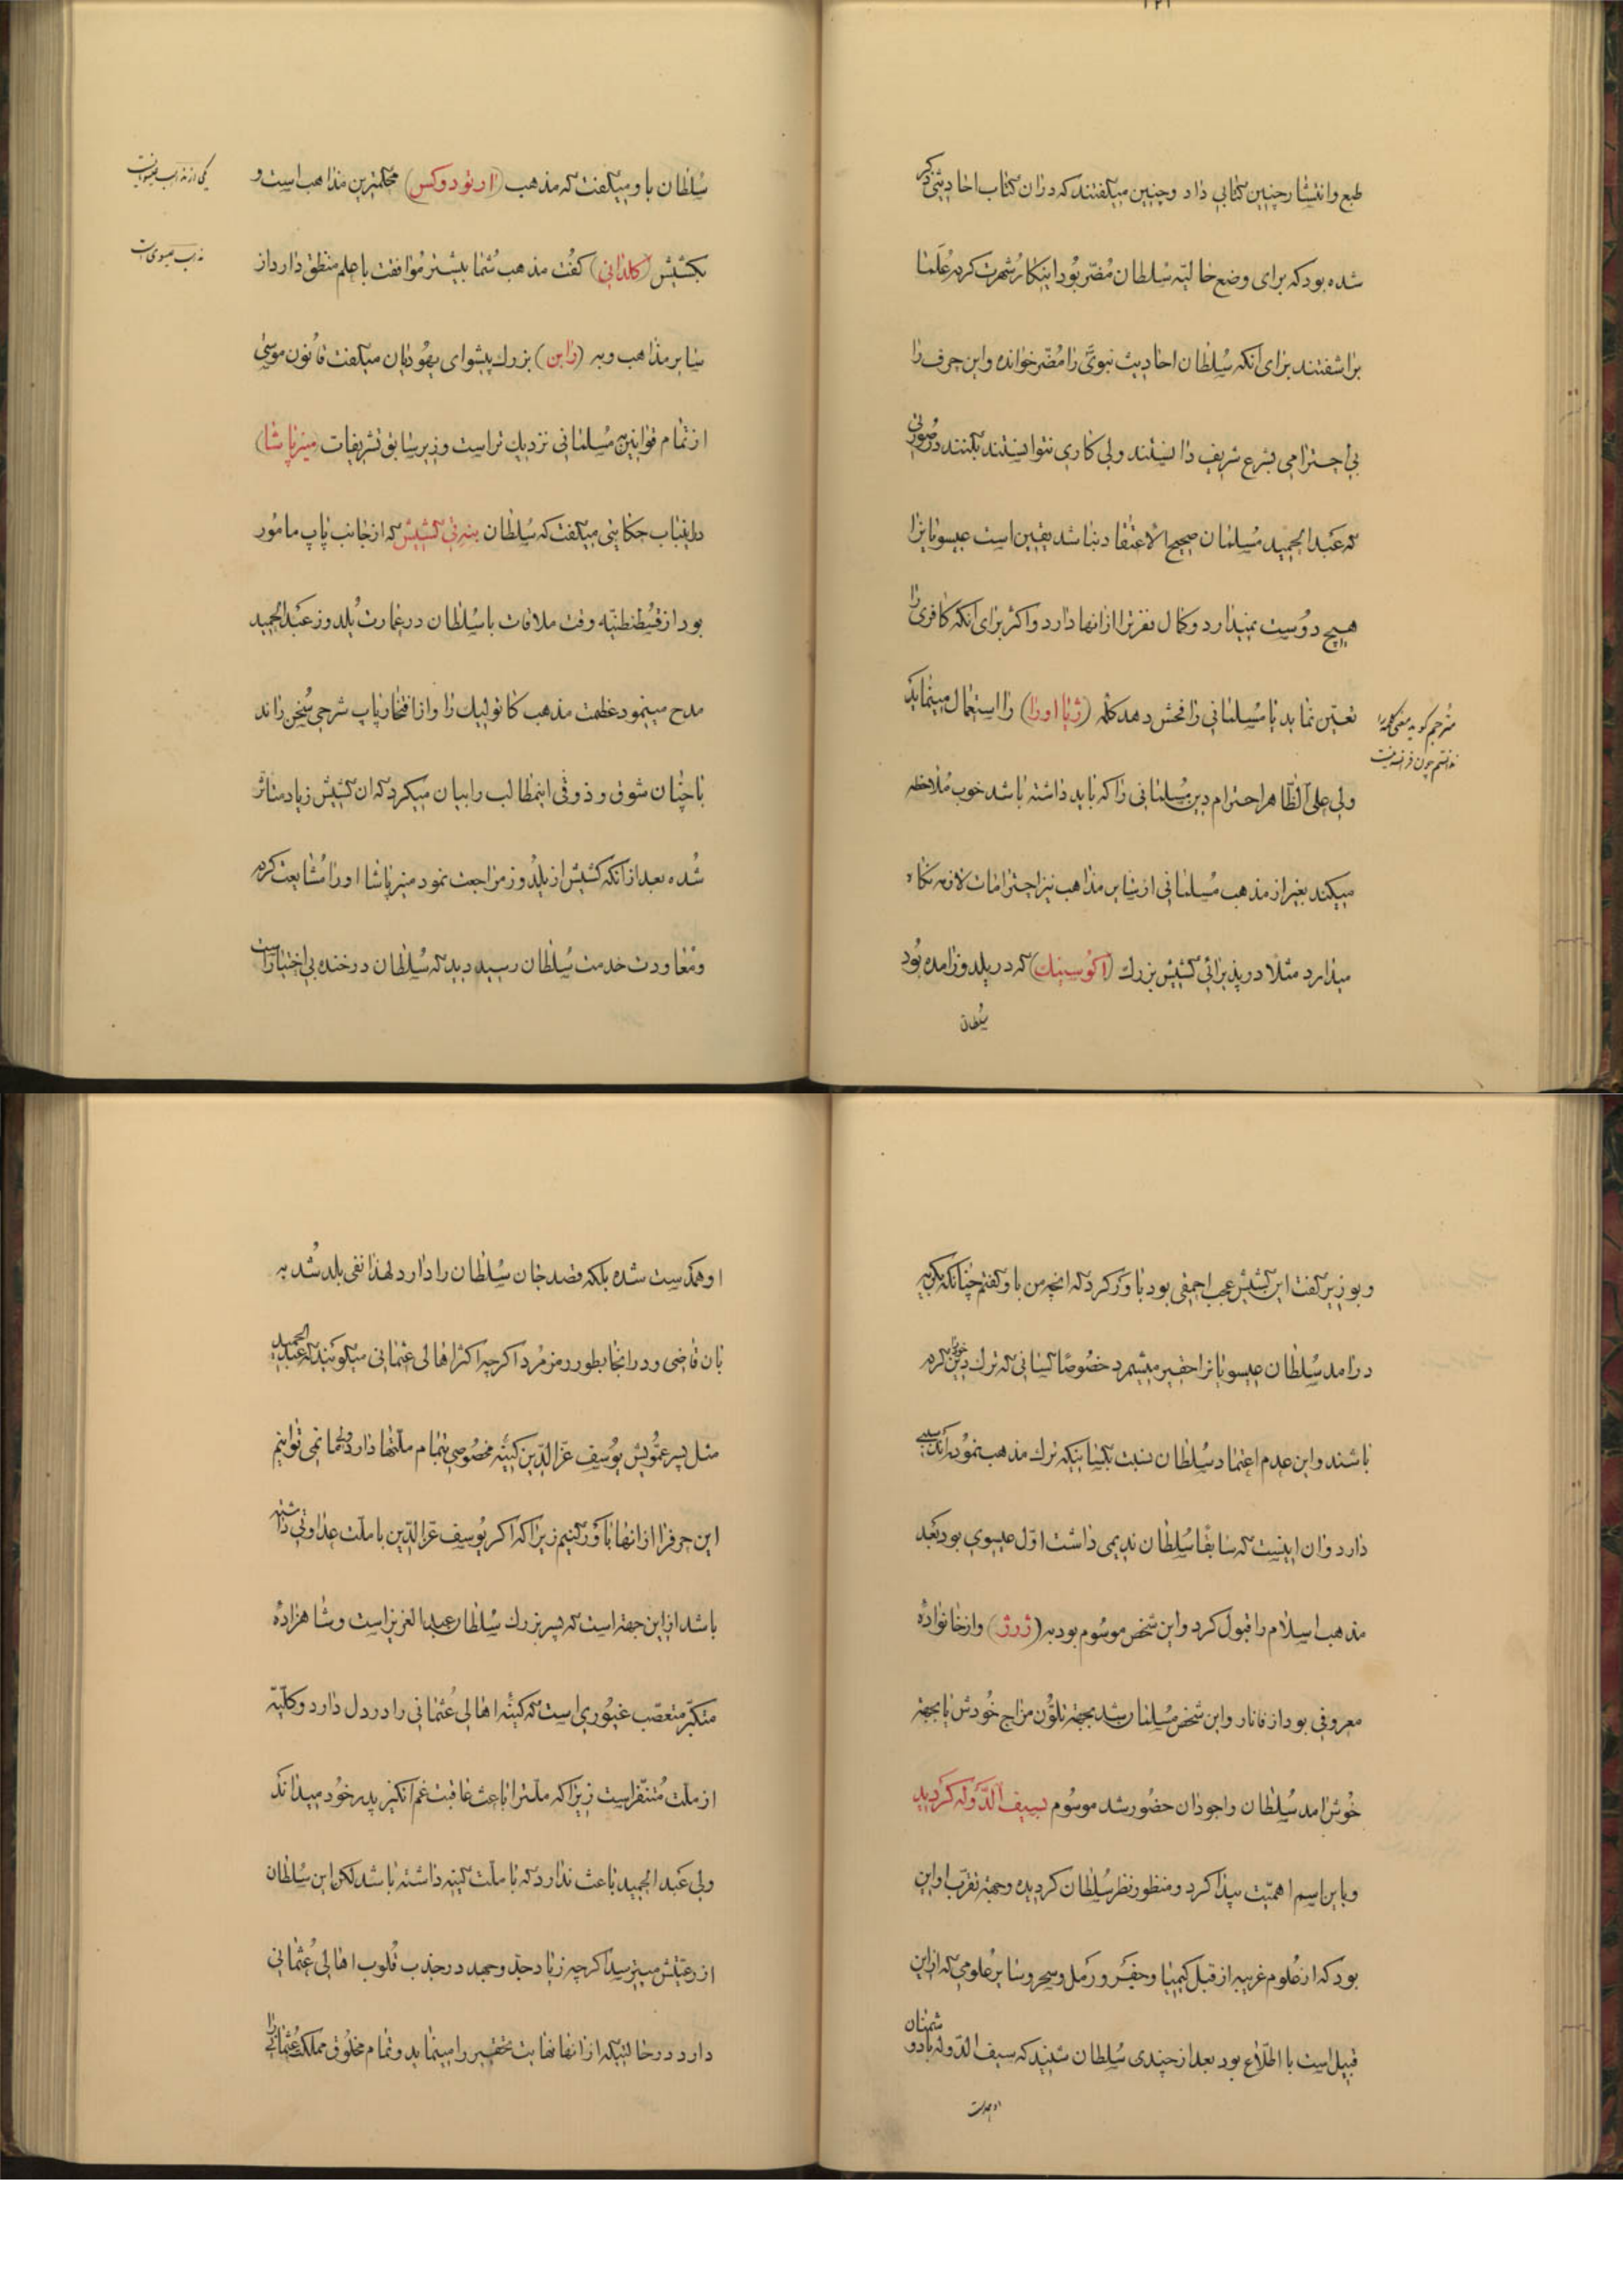 طبع وانتشار چنین کتابی داد وچنین میگفتند که دران کتاب احادیثی ذکر
شده بود که برای وضع حالیّه سُلطان مُضّر بُود اینکار شهرت کرده عُلَما
براشفتند برای انکه سُلطان احادیث نبویّ را مُضّر خوانده واین حرف را
بی احترامی بشرع شریف دانستند ولی کاری نتوانستند بکنند در صُورتی
که عَبد الحمید مُسلمان صحیح الاعتقاد نباشد یقین است عیسویانرا
هیچ دوُست نمیدارد وکمال نفرترا ازانها دارد واکثر برای انکه کافری را
تعیّن نماید یا مُسلمانی را فحش دهد کلمه (ژیا اورا) را استعمال مینماید
مترجم کوید معنی کلمه را
ندانستم چون فرانسه نیست
ولی علی الظّاهر احترام دین مُسلمانی را که باید داشته باشد خوب مُلاحظه
میکند بغیر از مذهب مُسلمانی از سایر مذاهب نیز احترامات لازمه نکاه
میدارد مثلا در پذیرائی کشیش بزرک (اکوُسینك) که در یلدوز امده بوُد
سُلطان
سُلطان باو میکفت که مذهب (ارتودوکس) محکمترین مذاهب است و
یکی از مذاهب عیسویانست
بکشیش (کلدانی) کفُت مذهب شُما بیشتر مُوافقت با علم منطق دارد از
مذهب عیسوی است
سایر مذاهب وبه (رابن) بزرك پیشوای یهُودیان میکفت قانوُن موسی
از تمام قوانین مُسلمانی نزدیك تر است وزیر سابق تشریفات (منیر پاشا)
دراینباب حکایتی میکفت که سُلطان بنهرتی کشیش که از جانب پاپ مامُور
بود از قسُطنطنیّه وقت ملاقات با سُلطان در عمارت یُلدوز عَبد الحمید
مدح مینمود عظمت مذهب کاتولیك را واز افتخار پاپ شرحی سُخن راند
با چنان شوق وذوقی اینمطالب را بیان میکرد که ان کشیش زیاد متاثّر
شُده بعد از انکه کشیش از یلدُوز مراجعت نمود منیر پاشا اورا مُشایعت کرده
ومُعاودت خدمت سُلطان رسید دید که سُلطان در خنده بی اختیار است
وبوزیر کفت این کشیش عجب احمقی بود باوَر کرد که انچه من باو کفتم چُنانکه بکریه
درامد سُلطان عیسویانرا حقیر میشمرد خصُوصًا کسانی که ترك دین خود کرده
باشند واین عدم اعتماد سُلطان نسبت بکسانیکه ترك مذهب نموُده اند سببی
دارد وان اینست که سابقًا سُلطان ندیمی داشت اوّل عیسوی بود بَعد
مذهب اسلام را قبول کرد واین شخص موسُوم بود به (ژرژ) واز خانوادهٔ
معروفی بود از فانار واین شخص مُسلمان شد بجهة تلوُّن مزاج خُودش یا بجهة
خُوش امد سُلطان واجودان حضُور شد موسُوم بسیف الدَّوله کَردید
وباین اسم اهمیّت پیدا کرد ومنظور نظر سُلطان کردیده وجهة تقرّب او این
بود که از عُلوم غریبه از قبل کیمیا وجفَر ورَمل وسحر وسایر عُلومی که از این
قبیل است با اطّلاع بود بعد از چندی سُلطان شنید که سیف الدّوله با دوشمنان
او همدست
او همدست شده بلکه قصد جان سُلطان را دارد لهذا نفی بلد شُد به
بان قاضی ودر انجا بطور رمز مُرد اکرچه اکثر اهالی عثمانی میکویند که عَبد الحمید
مثل پسر عمّویش یوُسف عزّ الدّین کینهٔ مخصُوصی بتمام ملّتها دارد ولی ما نمی توانیم
این حرفرا از انها باوَر کنیم زیرا که اکر یُوسف عزّ الدّین با ملّت عداوتی داشته
باشد از این جهة است که پسر بزرك سُلطان عبد العزیز است وشاهزادهٔ
متکبّر متعصّب غیُوری است که کینهٔ اهالی عُثمانی را در دل دارد وکلّیّة
از ملّت مُتنفّر است زیرا که ملّترا باعث عاقبت غم انکیز پدر خُود میداند
ولی عَبد الحمید باعث ندارد که با ملّت کینه داشته باشد لکن این سُلطان
از رعیّتش میترسد اکرچه زیاد جدّ وجهد در جذب قُلوب اهالی عُثمانی
دارد در حالتیکه از انها نهایت تحقیر را مینماید وتمام مخلُوق مملکت عُثمانی را